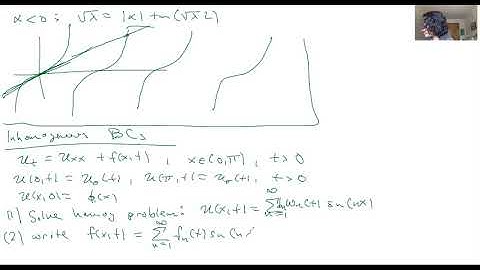 α<0: √λ = |α| tan(√λ 2)
Inhomogeneous BCs
u_t = u_xx + f(x,t), x∈(0,π), t>0
u(0,t) = u_0(t), u(π,t) = u_π(t), t>0
u(x,0) = φ(x)
(1) Solve homog problem: u(x,t) = ∑_{n=1}^∞ u_n(t) sin(nx)
(2) write f(x,t) = ∑_{n=1}^∞ f_n(t) sin(nx